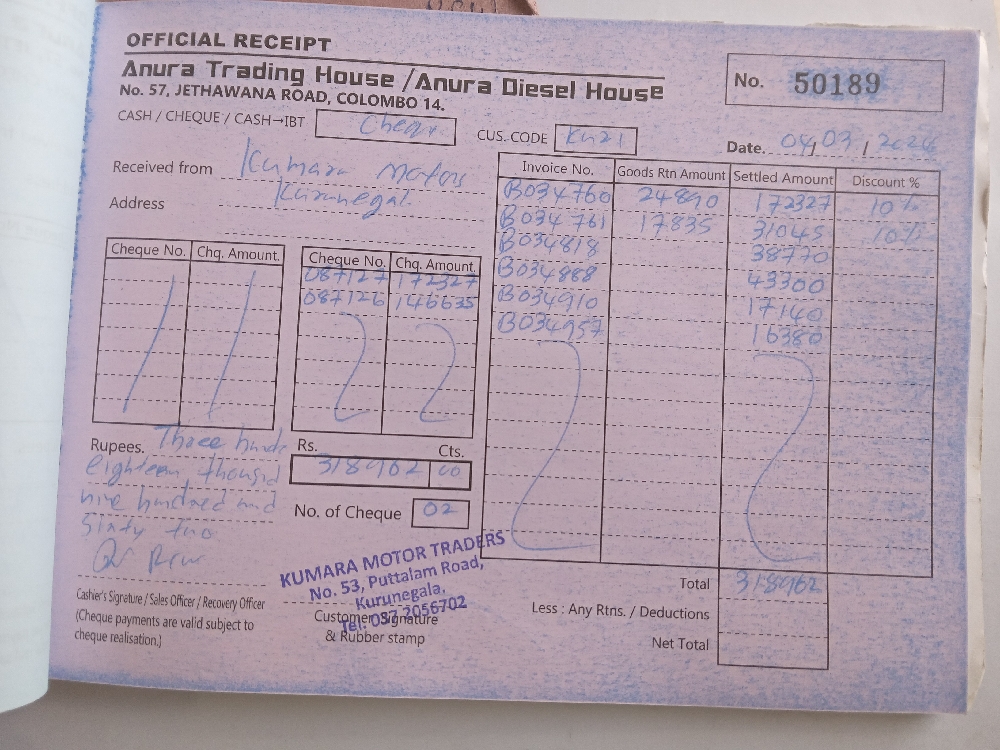 OFFICIAL RECEIPT
Anura Trading House / Anura Diesel House
No. 57, JETHAWANA ROAD, COLOMBO 14.
No. 50189
CASH / CHEQUE / CASH→IBT Cheque
CUS. CODE KU21
Date. 04,03,2024
Received from Kumara Motors
Address Kurunegal
Invoice No. Goods Rtn Amount Settled Amount Discount %
B034760 24890 172327 10%
B034761 17835 31045 10%
B034818 38770
B034888 43300
B034910 17140
B034957 16380
Cheque No. Chq. Amount.
Cheque No. Chq. Amount.
087127 172327
087126 146635
Rupees. Three hund
eighteen thousand
nine hundred and
Sixty two
Rs. Cts.
318962 00
No. of Cheque 02
KUMARA MOTOR TRADERS
No. 53, Puttalam Road,
Kurunegala.
Tel: 037 2056702
Cashier's Signature / Sales Officer / Recovery Officer
(Cheque payments are valid subject to
cheque realisation.)
Customer Signature
& Rubber stamp
Total 318962
Less : Any Rtns. / Deductions
Net Total